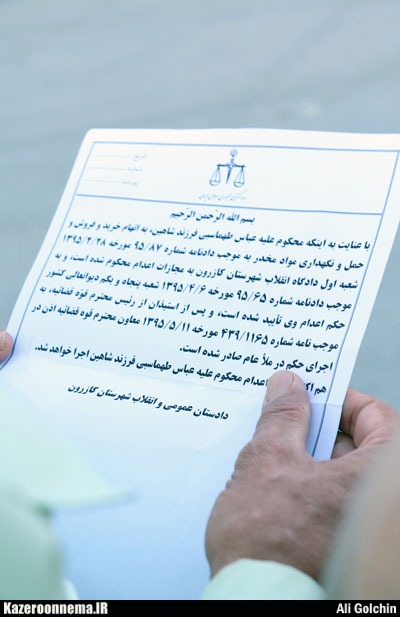 تاریخ:
شماره:
پیوست:
دادگستری جمهوری اسلامی ایران
بسم الله الرّحمن الرّحیم
با عنایت به اینکه محکوم علیه عباس طهماسبی فرزند شاهین، به اتهام خرید و فروش و
حمل و نگهداری مواد مخدر به موجب دادنامه شماره ۹۵/۸۷ مورخه ۱۳۹۵/۲/۲۸
شعبه اول دادگاه انقلاب شهرستان کازرون به مجازات اعدام محکوم شده است، و به
موجب دادنامه شماره ۹۵/۶۵ مورخه ۱۳۹۵/۴/۶ شعبه پنجاه و یکم دیوانعالی کشور
حکم اعدام وی تأیید شده است، و پس از استیذان از رئیس محترم قوه قضائیه، به
موجب نامه شماره ۴۳۹/۱۱۶۵ مورخه ۱۳۹۵/۵/۱۱ معاون محترم قوه قضائیه اذن در
اجرای حکم در ملأ عام صادر شده است.
هم اک اعدام محکوم علیه عباس طهماسبی فرزند شاهین اجرا خواهد شد.
دادستان عمومی و انقلاب شهرستان کازرون
Kazeroonnema.IR
Ali Golchin